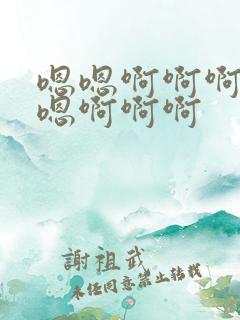 嗯嗯啊啊啊
嗯啊啊啊
謝祖武
未经同意禁止转载